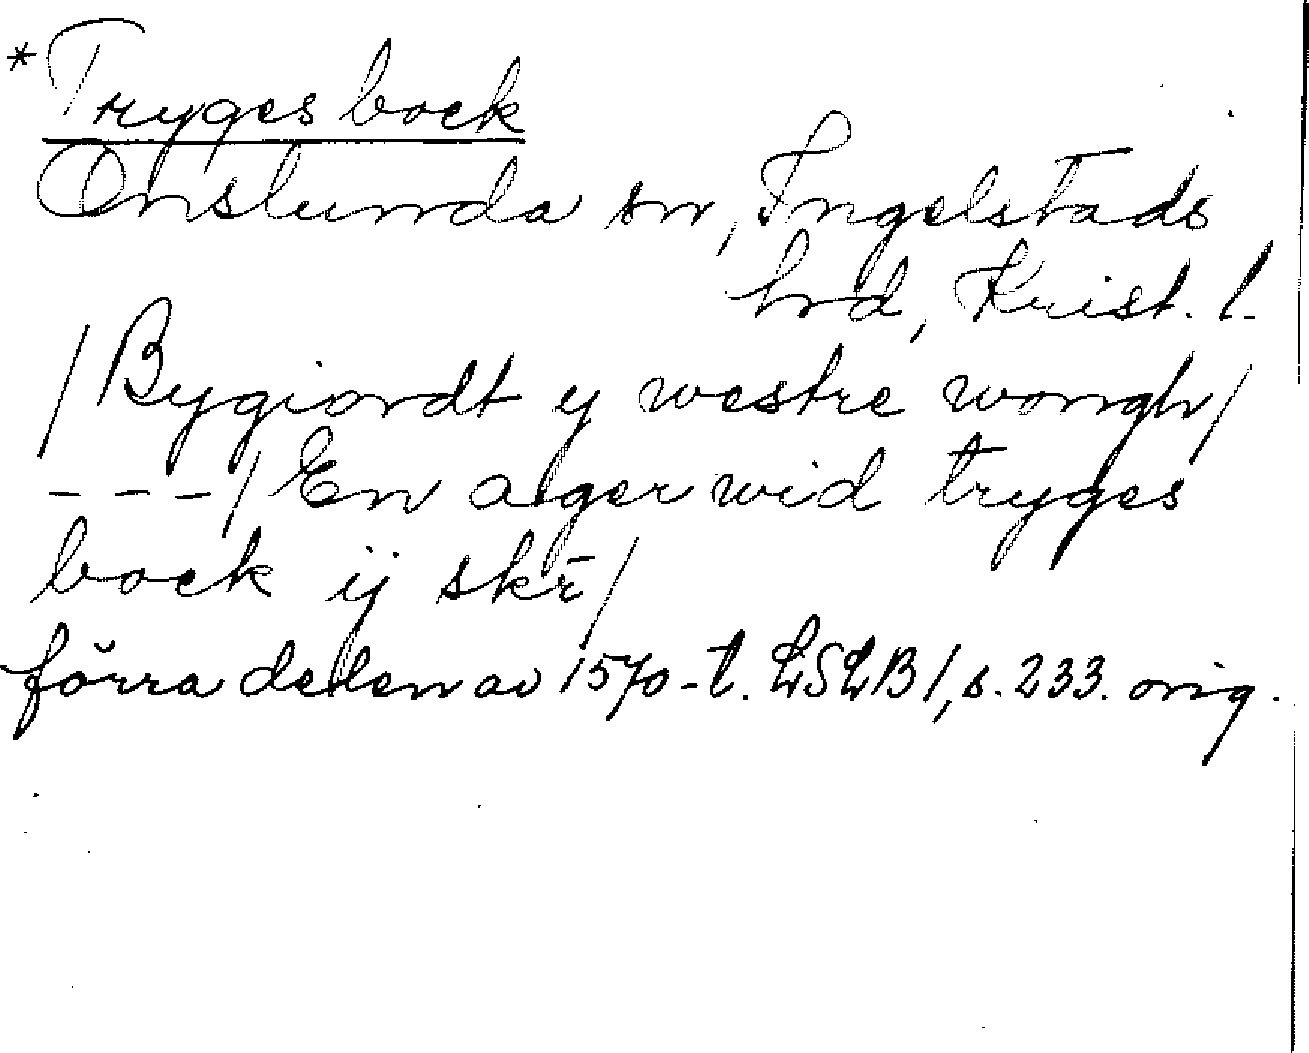 * Tryges bock
Onslunda sn, Ingelstads
hrd, Krist. l.
/Bygiordt y westre wongh/
---/En ager wid tryges
bock ij skr̄/
förra delen av 1570-t. LSLB1, s. 233. orig.